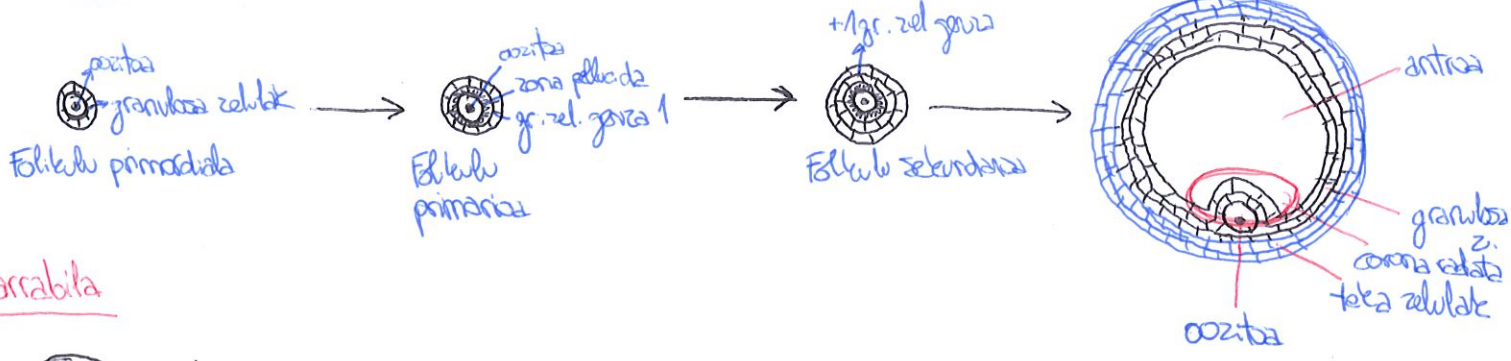 oozitoa
granulosa zelulak
Folikulu primordiala
oozitoa
zona pellucida
gr. zel. geruza 1
Folikulu
primarioa
+1 gr. zel geruza
Folikulu sekundarioa
antroa
granulosa
z.
corona radiata
teka zelulak
oozitoa
arrabila